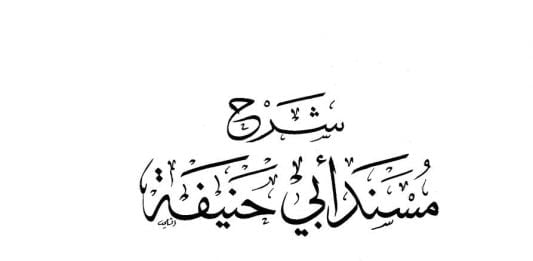 شرح
مُسْنَد أبي حَنِيفَة